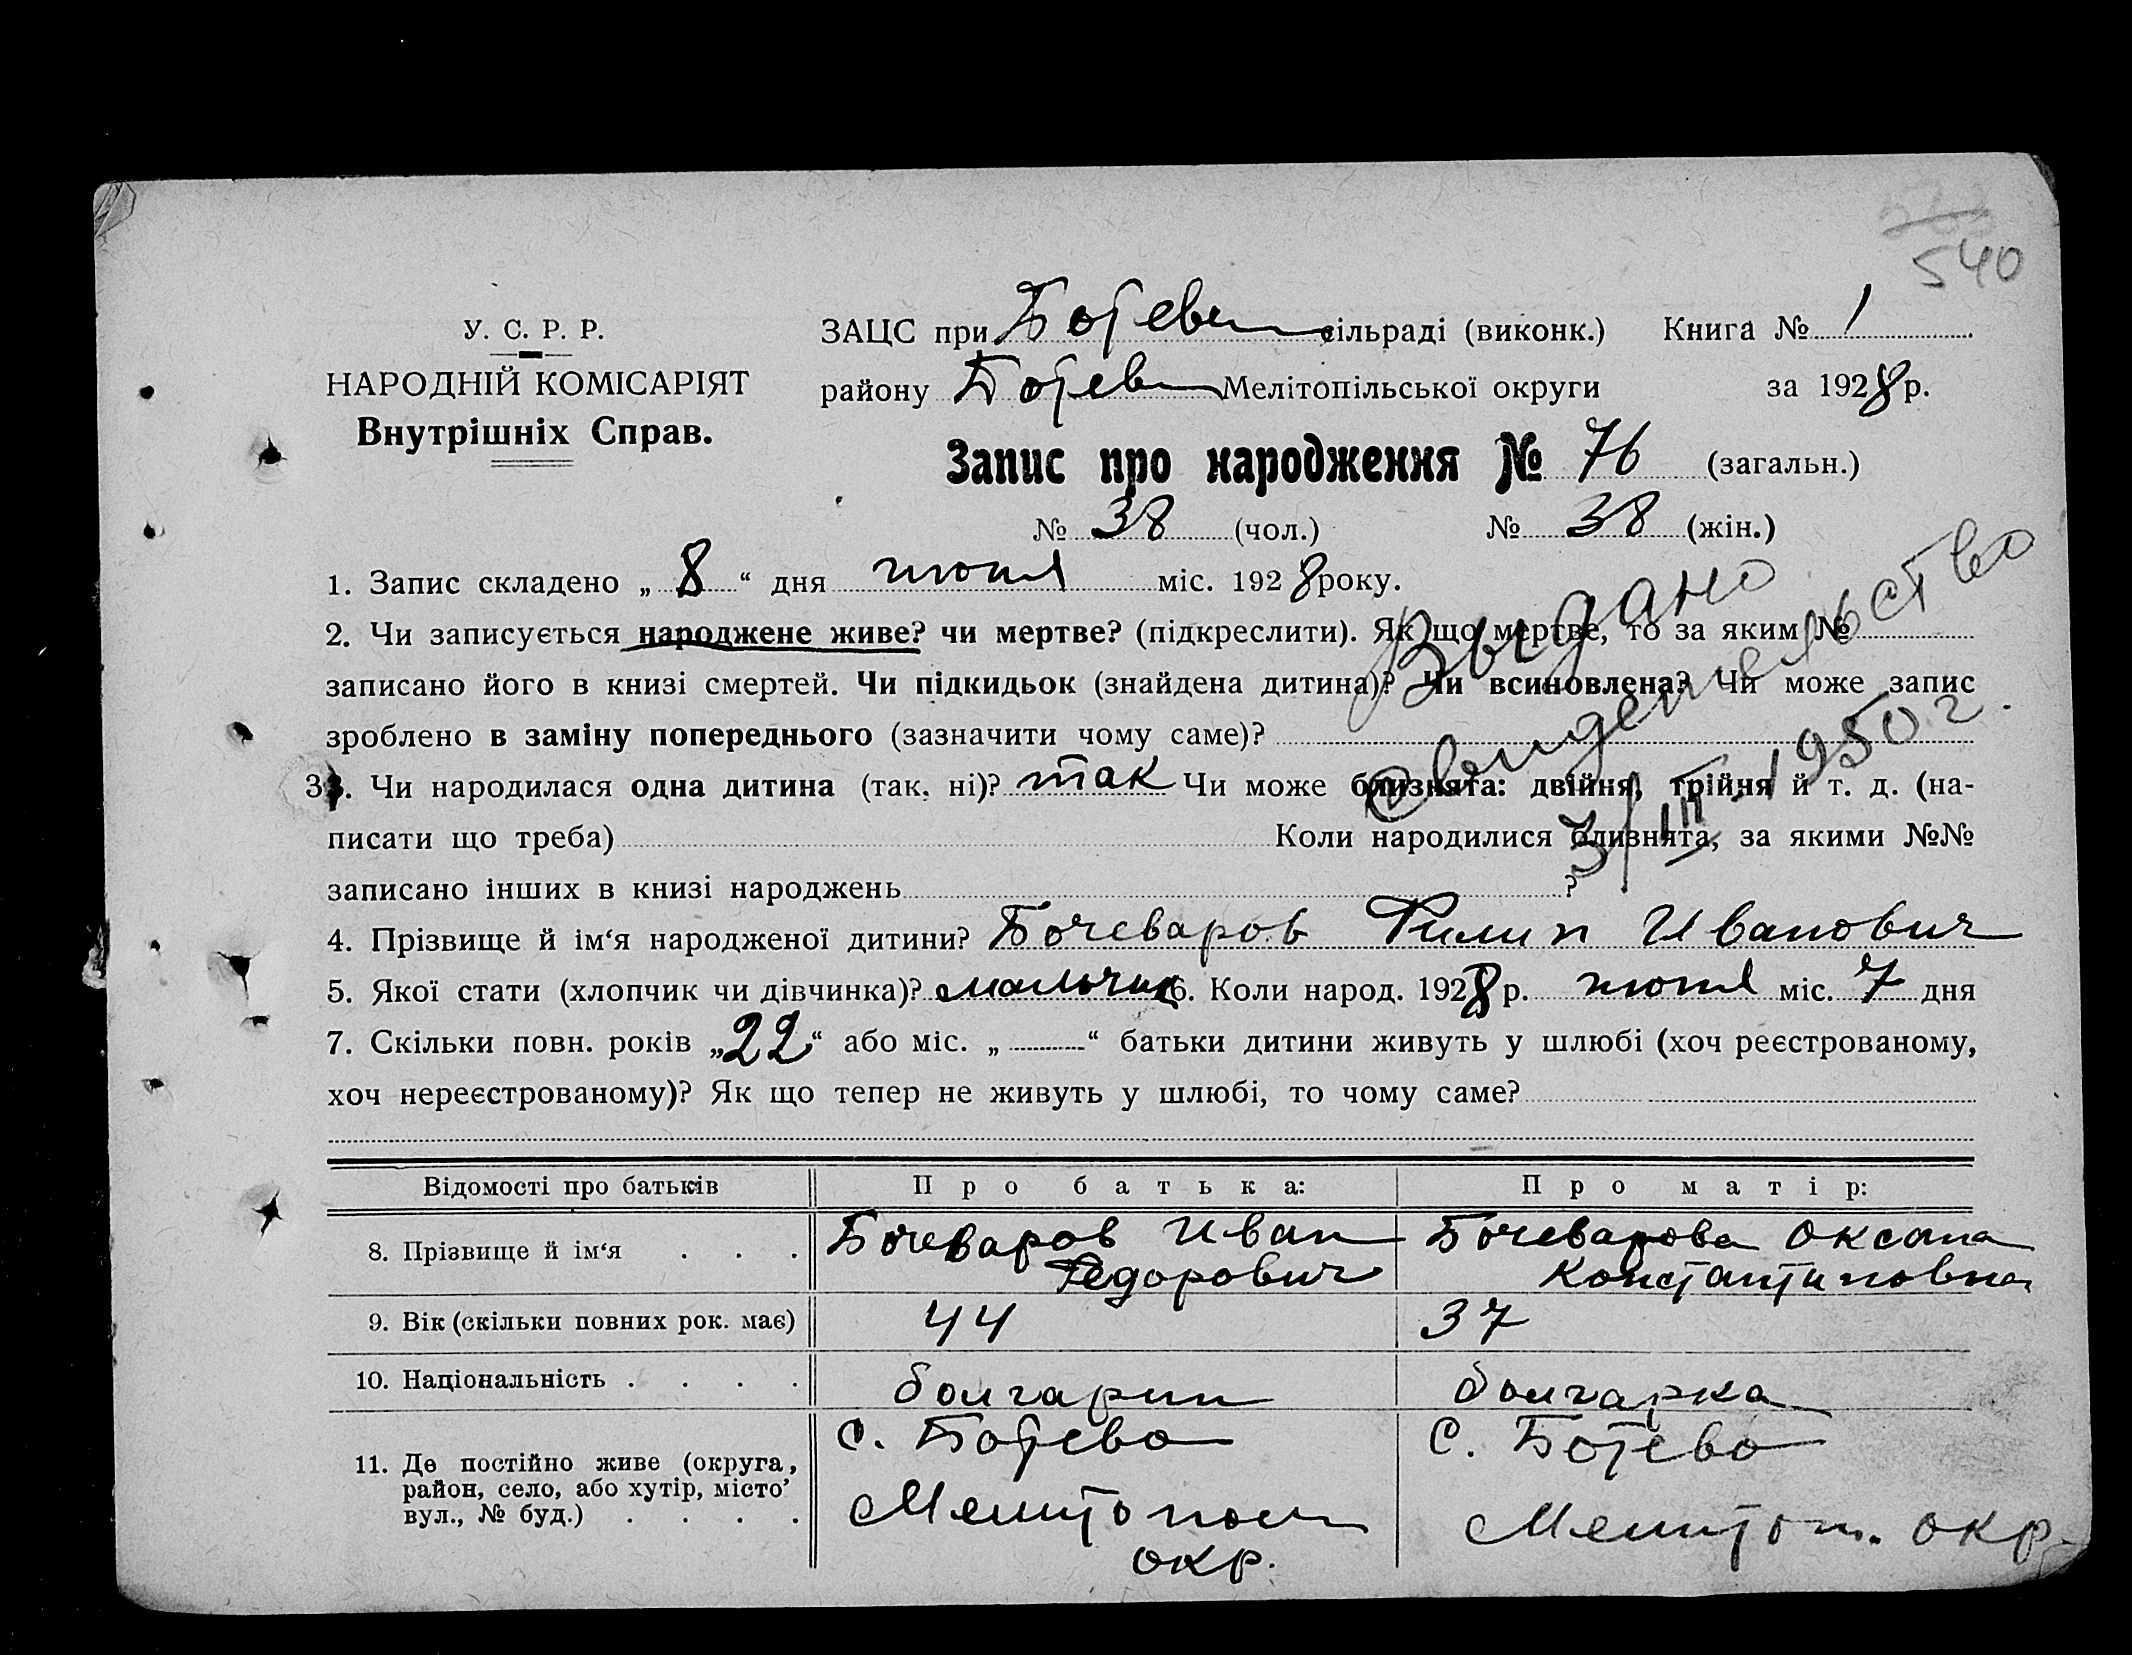 540
У. С. Р. Р.
НАРОДНІЙ КОМІСАРІЯТ
Внутрішніх Справ.
ЗАЦС при Ботеве сільраді (виконк.) Книга № 1
району Ботев Мелітопільської округи за 1928 р.
Запис про народження № 76 (загальн.)
№ 38 (чол.) № 38 (жін.)
1. Запис складено „ 8 “ дня июня міс. 1928 року.
2. Чи записується народжене живе? чи мертве? (підкреслити). Як що мертве, то за яким №
записано його в книзі смертей. Чи підкидьок (знайдена дитина)? Чи всиновлена? Чи може запис
зроблено в заміну попереднього (зазначити чому саме)?
Выдано
Свидетельство
3/III 1950 г.
3. Чи народилася одна дитина (так, ні)? так Чи може близнята: двійня, трійня й т. д. (на-
писати що треба) Коли народилися близнята, за якими №№
записано інших в книзі народжень ?
4. Прізвище й ім‘я народженої дитини? Бочеваров Филип Иванович
5. Якої стати (хлопчик чи дівчинка)? мальчик 6. Коли народ. 1928 р. июня міс. 7 дня
7. Скільки повн. років „22“ або міс. „ “ батьки дитини живуть у шлюбі (хоч реєстрованому,
хоч нереєстрованому)? Як що тепер не живуть у шлюбі, то чому саме?
Відомості про батьків Про батька: Про матір:
8. Прізвище й ім‘я . . . Бочеваров Иван Федорович Бочеварова Оксана Константиновна
9. Вік (скільки повних рок. має) 44 37
10. Національність . . . . болгарин болгарка
11. Де постійно живе (округа, район, село, або хутір, місто, вул., № буд.) . . . . с. Ботево Мелитопол окр. с. Ботево Мелитоп. окр.